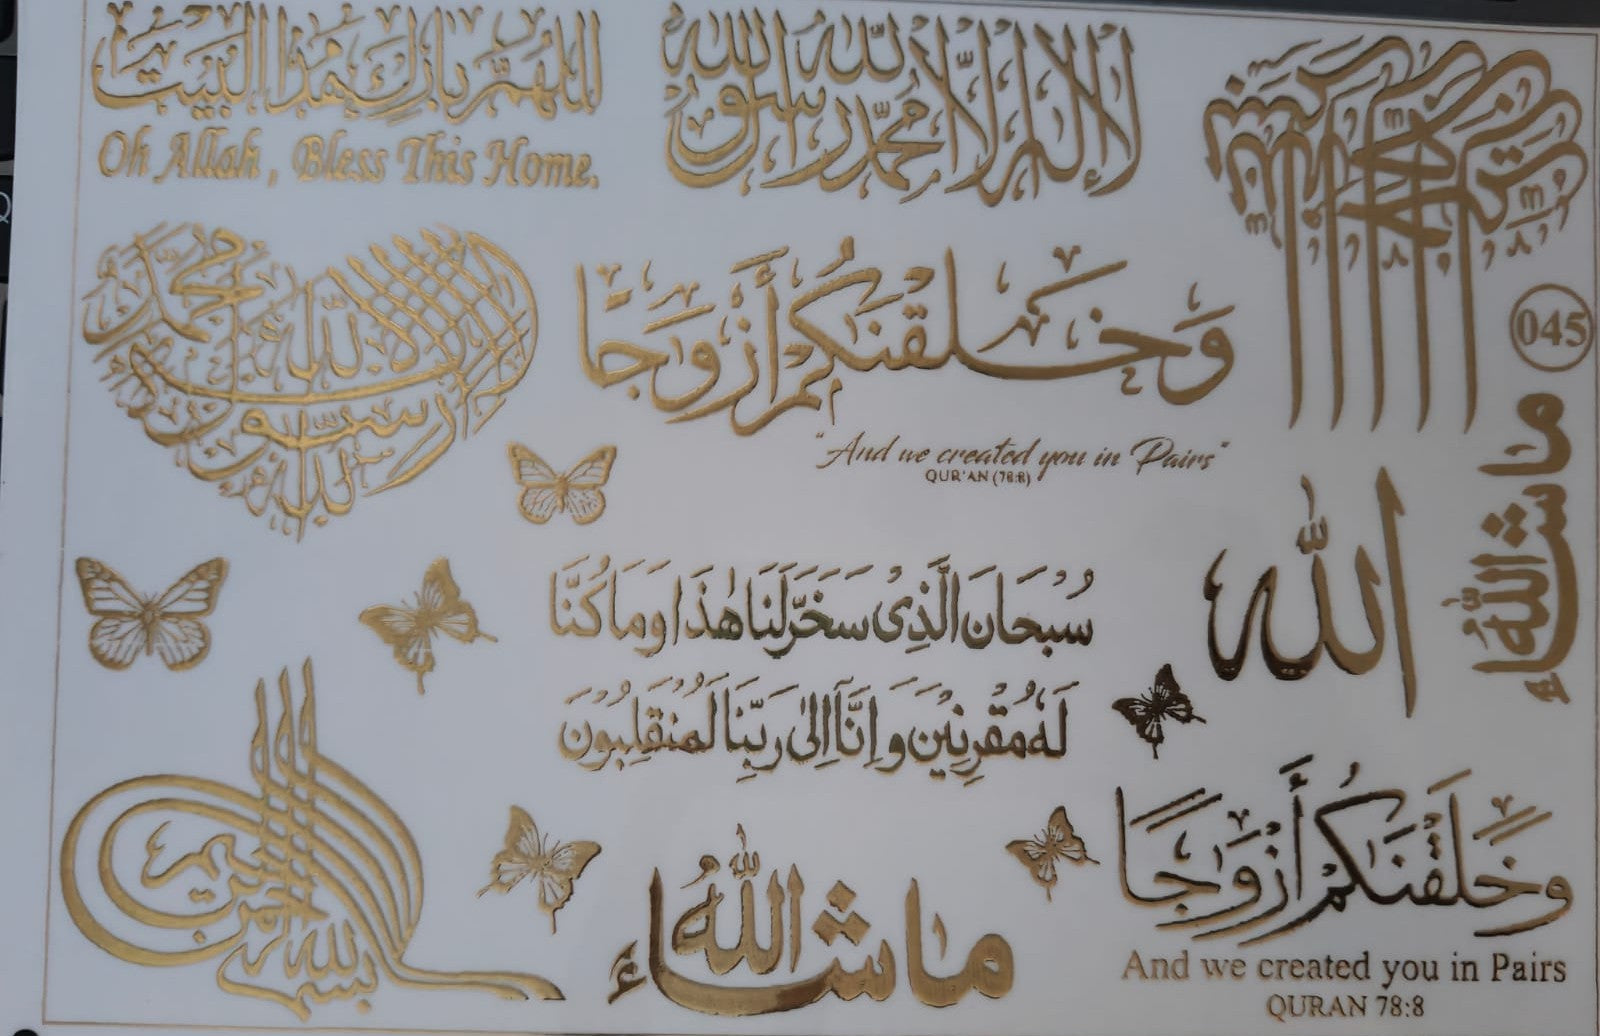 اللهم بارك هذا البيت
Oh Allah, Bless This Home.
لا إله إلا الله محمد رسول الله
لا إله إلا الله محمد رسول الله
وَخَلَقْنَكُمْ أَزْوَجًا
"And we created you in Pairs"
QUR'AN (78:8)
045
ما شاء الله
الله
سُبْحَانَ الَّذِىْ سَخَّرَ لَنَا هٰذَا وَمَا كُنَّا
لَهٗ مُقْرِنِيْنَ وَاِنَّآ اِلٰى رَبِّنَا لَمُنْقَلِبُوْنَ
بسم الله الرحمن الرحيم
ما شاء الله
وَخَلَقْنَكُمْ أَزْوَجًا
And we created you in Pairs
QURAN 78:8